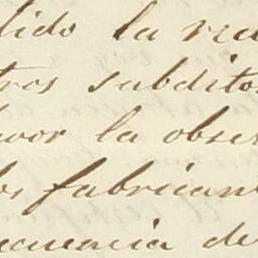 lido la re
tros subditos
avor la obser
los fabrican
ecuencia de